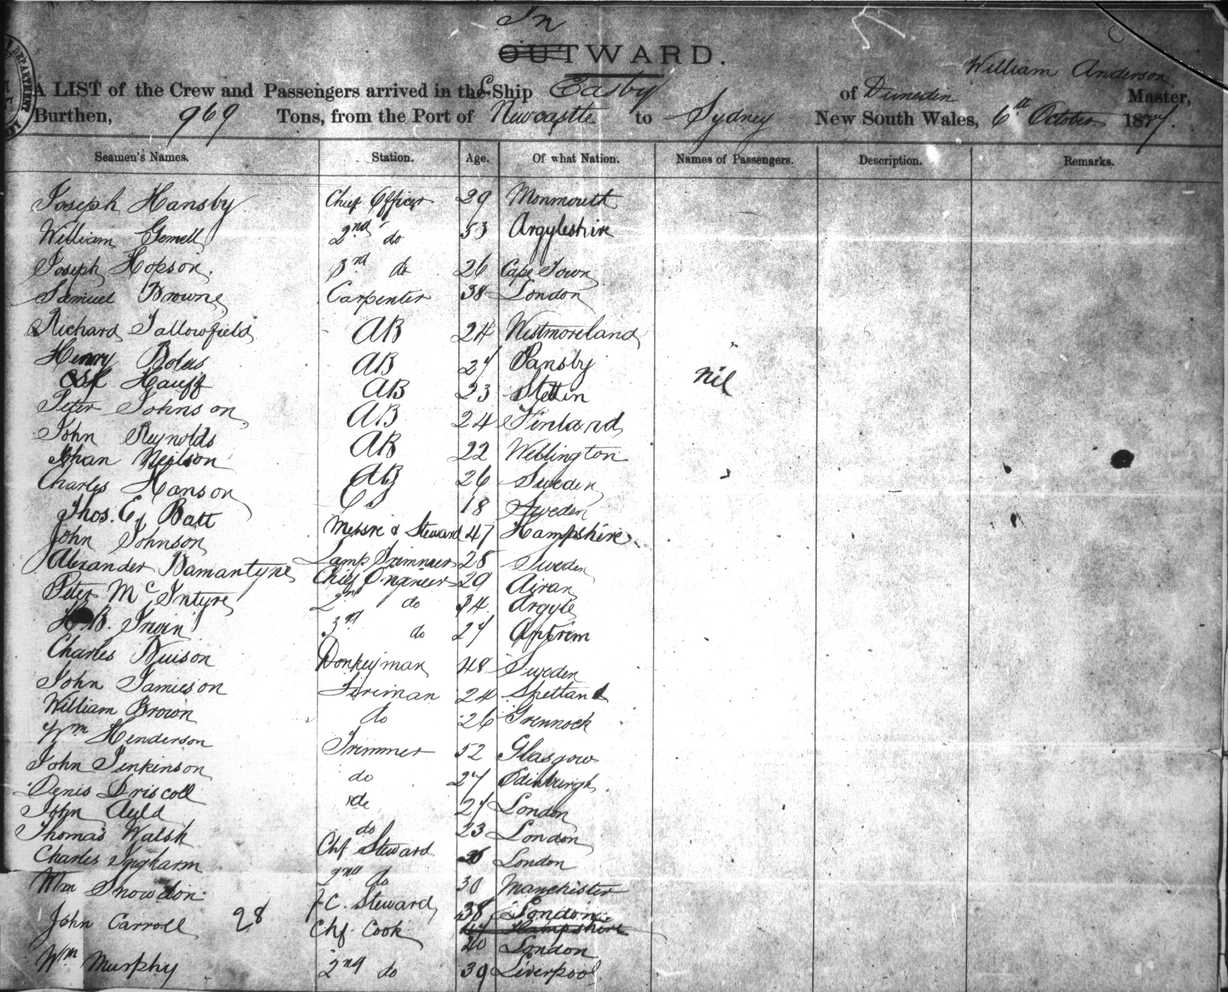 In
OUTWARD.
William Anderson
A LIST of the Crew and Passengers arrived in the S-Ship Easby of Dunedin Master,
Burthen, 969 Tons, from the Port of Newcastle to Sydney New South Wales, 6th October 1877.
Seamen's Names. Station. Age. Of what Nation. Names of Passengers. Description. Remarks.
Joseph Hansby Chief Officer 29 Monmouth
William Gemell 2nd do 53 Argyleshire
Joseph Hopson 3rd do 26 Cape Town
Samuel Browne Carpenter 38 London
Richard Tallowfield AB 24 Westmoreland
Henry Boles AB 27 Pansby
Hauff AB 23 Stettin nil
Peter Johnson AB 24 Finland
John Reynolds AB 22 Wellington
Johan Neilson AB 26 Sweden
Charles Hanson 18 Sweden
Thos. E. Batt Messre & Steward 47 Hampshire
John Johnson Lamp Trimmer 28 Sweden
Alexander Bamantyne Chief Engineer 29
Peter McIntyre 2nd do 34 Argyle
H.B. Irwin 3rd do 27 Antrim
Charles Donkeyman 48 Sweden
John Jamieson Fireman 24 Shetland
William Brown do 26 Grennock
Wm Henderson Trimmer 52 Glasgow
John Jenkinson do 27 Edinburgh
Denis Driscoll do 27 London
John Auld do 23 London
Thomas Walsh Chf Steward London
Charles Ingharm 2nd do 30 Manchester
Wm Snowdon F.C. Steward 38 London
John Carroll 28 Chf Cook 47 Hampshire
40 London
Wm Murphy 2nd do 39 Liverpool